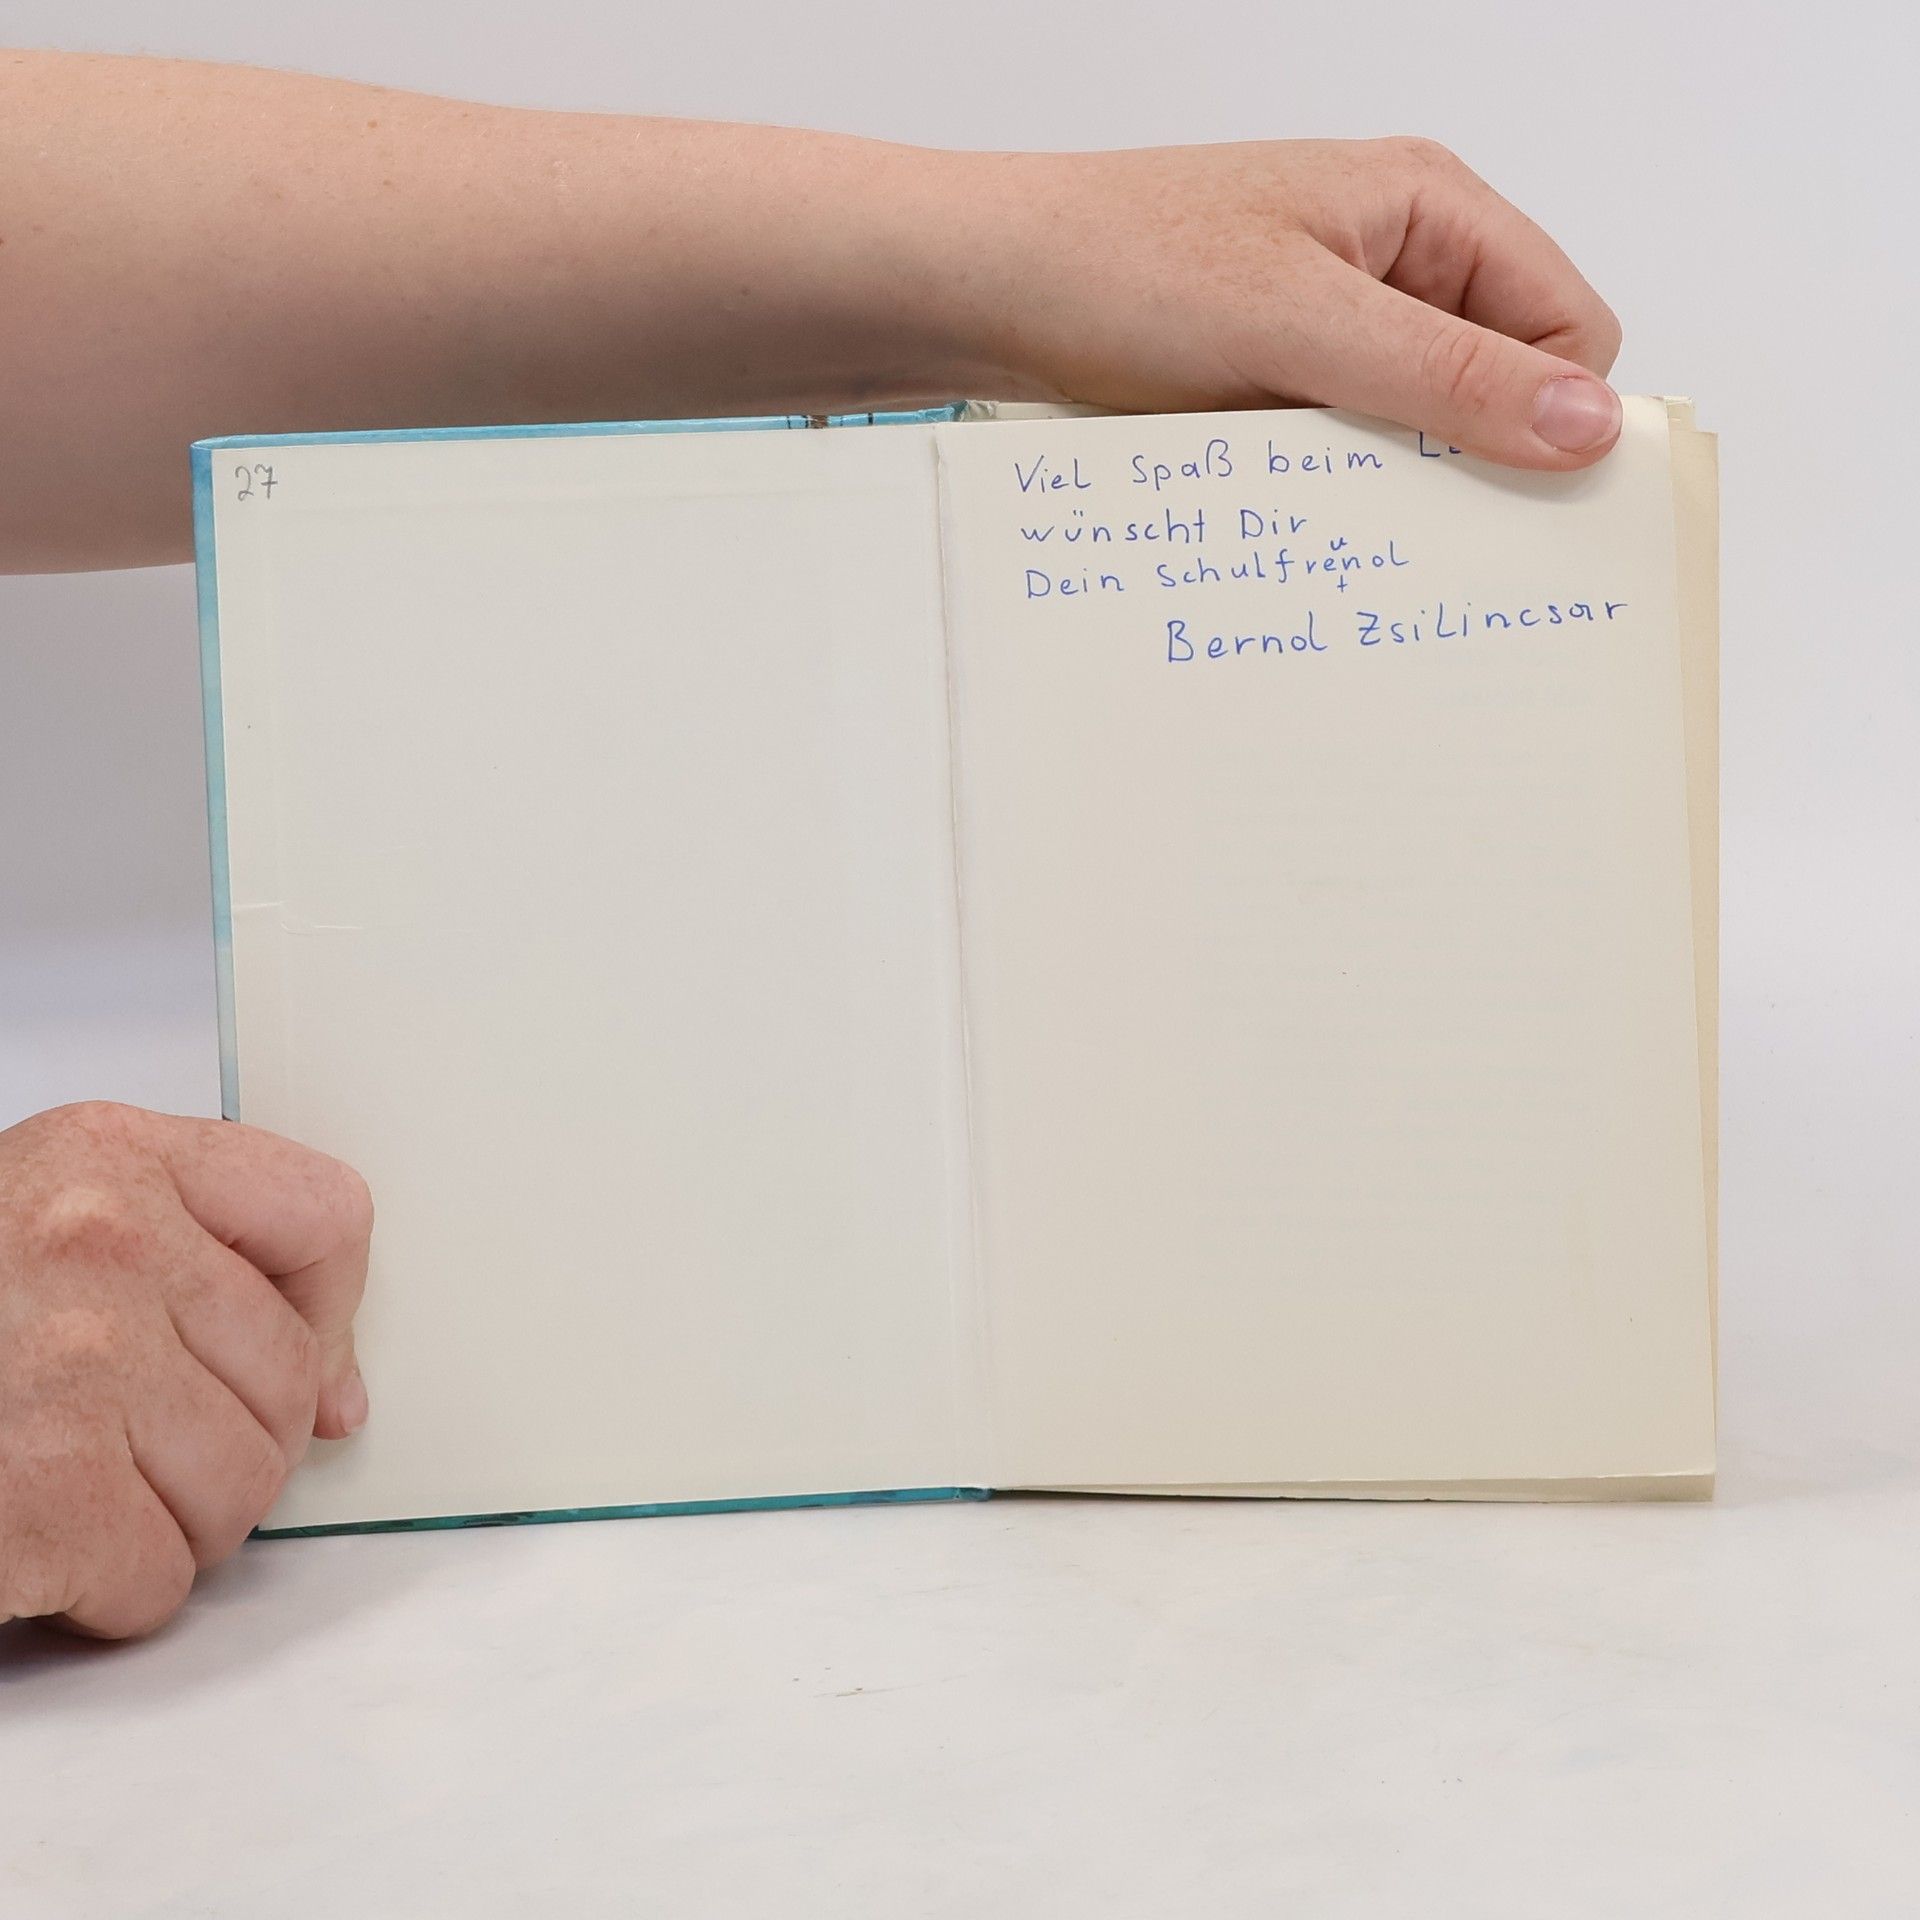 27
Viel Spaß beim
wünscht Dir
Dein Schulfreund
Bernd Zsilincsar